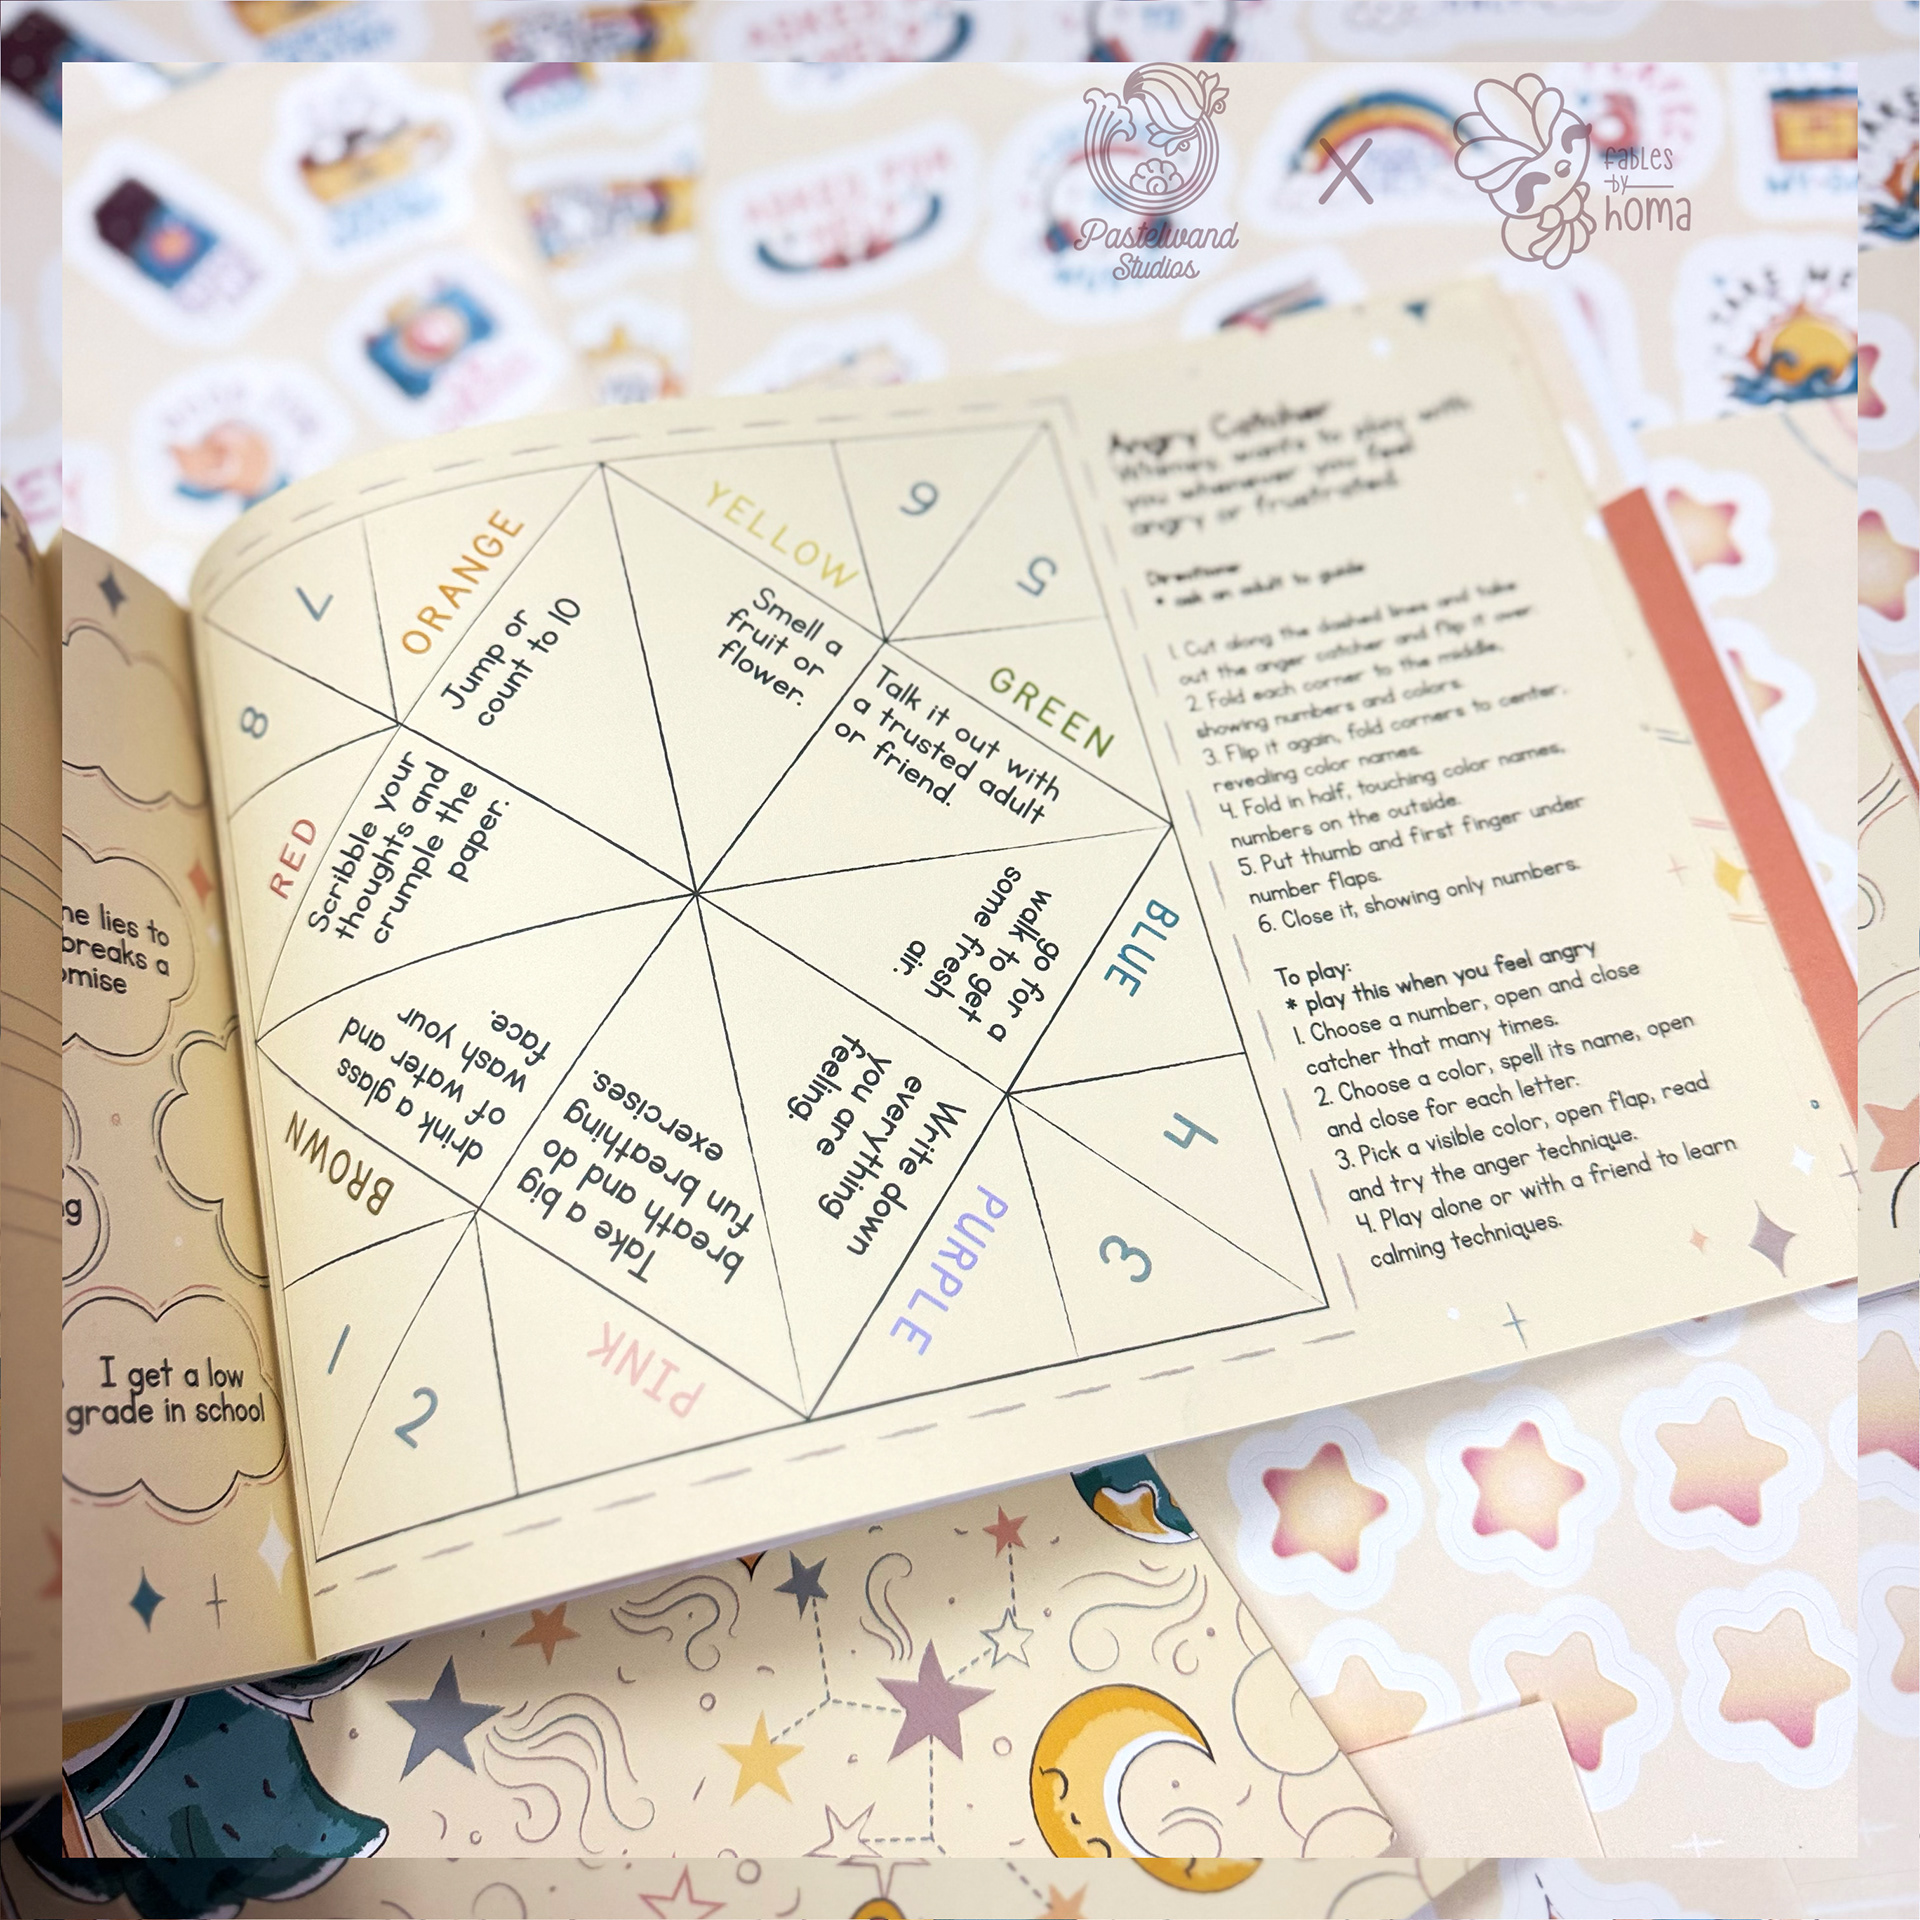 Pastelwand
Studios
X
fables
by
homa
Angry Catcher
wants to play with
you whenever you feel
angry or frustrated.
Directions:
* ask an adult to guide
1. Cut along the dashed lines and take
out the anger catcher and flip it over.
2. Fold each corner to the middle,
showing numbers and colors.
3. Flip it again, fold corners to center,
revealing color names.
4. Fold in half, touching color names,
numbers on the outside.
5. Put thumb and first finger under
number flaps.
6. Close it, showing only numbers.
To play:
* play this when you feel angry
1. Choose a number, open and close
catcher that many times.
2. Choose a color, spell its name, open
and close for each letter.
3. Pick a visible color, open flap, read
and try the anger technique.
4. Play alone or with a friend to learn
calming techniques.
7
ORANGE
Jump or
count to 10
YELLOW
Smell a
fruit or
flower.
6
5
GREEN
Talk it out with
a trusted adult
or friend.
BLUE
go for a
walk to get
some fresh
air.
4
3
PURPLE
Write down
everything
you are
feeling.
PINK
Take a big
breath and do
fun breathing
exercises.
2
1
BROWN
drink a glass
of water and
wash your
face.
RED
Scribble your
thoughts and
crumple the
paper.
8
ne lies to
breaks a
omise
g
I get a low
grade in school